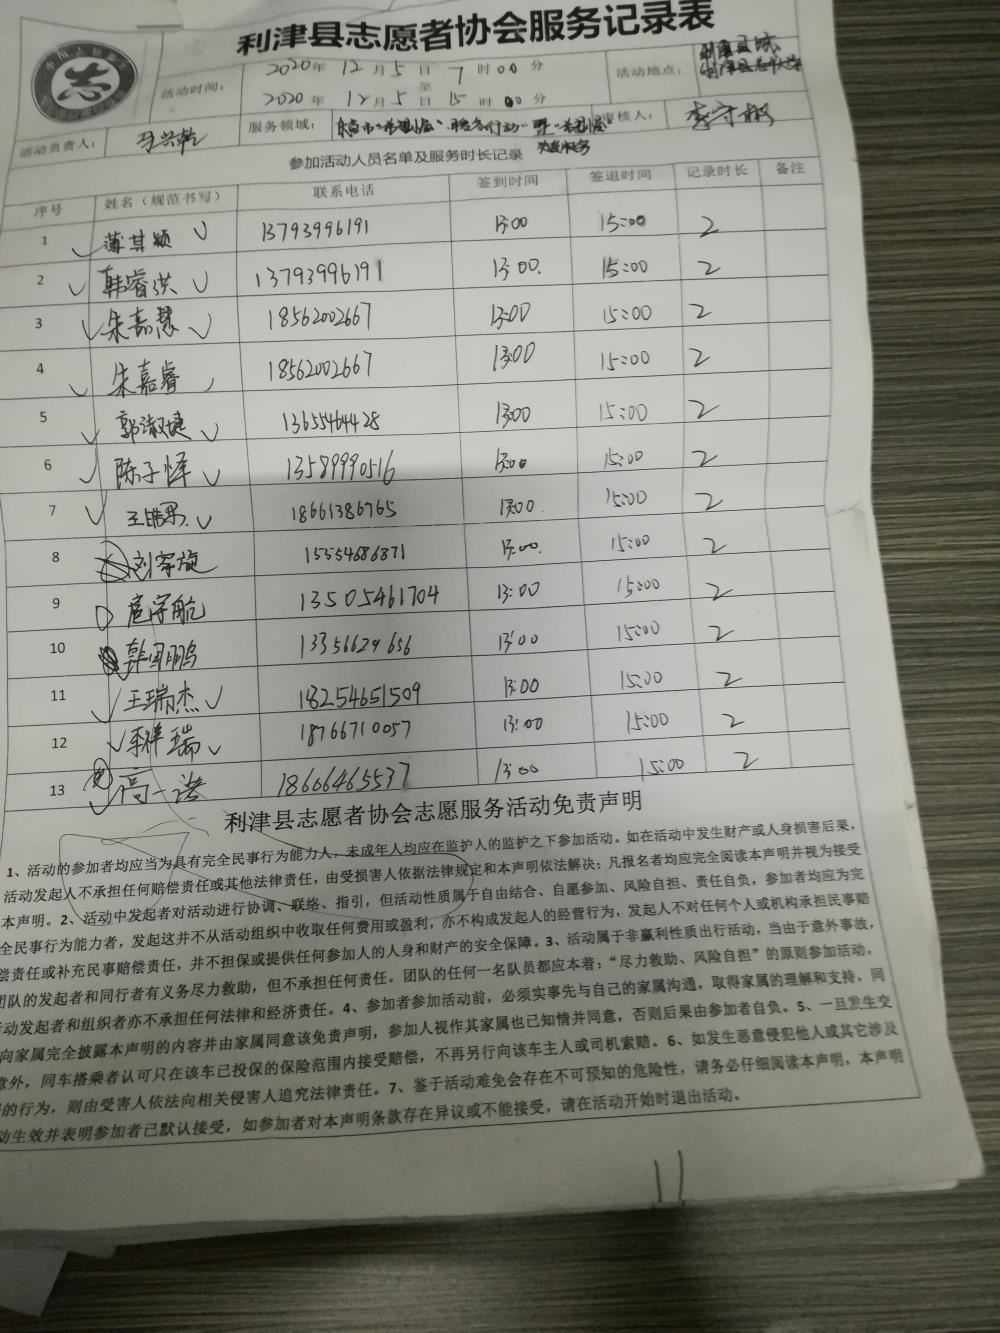 利津县志愿者协会服务记录表
活动时间： 2020年 12月5日 7时00分 活动地点： 利津县城
至
2020年 12月5日 15时00分
活动负责人： 服务领域： 审核人： 李守
参加活动人员名单及服务时长记录
序号 姓名（规范书写） 联系电话 签到时间 签退时间 记录时长 备注
1 薄其颖 13793996191 13:00 15:00 2
2 韩睿洪 13793996191 13:00 15:00 2
3 朱嘉慧 18562002667 13:00 15:00 2
4 朱嘉睿 18562002667 13:00 15:00 2
5 郭淑婕 13655464428 13:00 15:00 2
6 陈子怿 13589990516 13:00 15:00 2
7 王皓男 18661386765 13:00 15:00 2
8 刘家旋 15554686871 13:00 15:00 2
9 扈宇航 13505461704 13:00 15:00 2
10 郭闰鹏 13356629656 13:00 15:00 2
11 王瑞杰 18254651509 13:00 15:00 2
12 李祥瑞 18766710057 13:00 15:00 2
13 高一诺 18606465537 13:00 15:00 2
利津县志愿者协会志愿服务活动免责声明
1、活动的参加者均应当为具有完全民事行为能力人，未成年人均应在监护人的监护之下参加活动。如在活动中发生财产或人身损害后果，
活动发起人不承担任何赔偿责任或其他法律责任，由受损害人依据法律规定和本声明依法解决；凡报名者均应完全阅读本声明并视为接受
本声明。2、活动中发起者对活动进行协调、联络、指引，但活动性质属于自由结合、自愿参加、风险自担、责任自负，参加者均应为完
全民事行为能力者，发起这并不从活动组织中收取任何费用或盈利，亦不构成发起人的经营行为，发起人不对任何个人或机构承担民事赔
偿责任或补充民事赔偿责任，并不担保或提供任何参加人的人身和财产的安全保障。3、活动属于非赢利性质出行活动，当由于意外事故，
团队的发起者和同行者有义务尽力救助，但不承担任何责任。团队的任何一名队员都应本着：“尽力救助、风险自担”的原则参加活动，
动发起者和组织者亦不承担任何法律和经济责任。4、参加者参加活动前，必须实事先与自己的家属沟通，取得家属的理解和支持，同
向家属完全披露本声明的内容并由家属同意该免责声明，参加人视作其家属也已知情并同意，否则后果由参加者自负。5、一旦发生交
意外，同车搭乘者认可只在该车已投保的保险范围内接受赔偿，不再另行向该车主人或司机索赔。6、如发生恶意侵犯他人或其它涉及
的行为，则由受害人依法向相关侵害人追究法律责任。7、鉴于活动难免会存在不可预知的危险性，请务必仔细阅读本声明，本声明
动生效并表明参加者已默认接受，如参加者对本声明条款存在异议或不能接受，请在活动开始时退出活动。